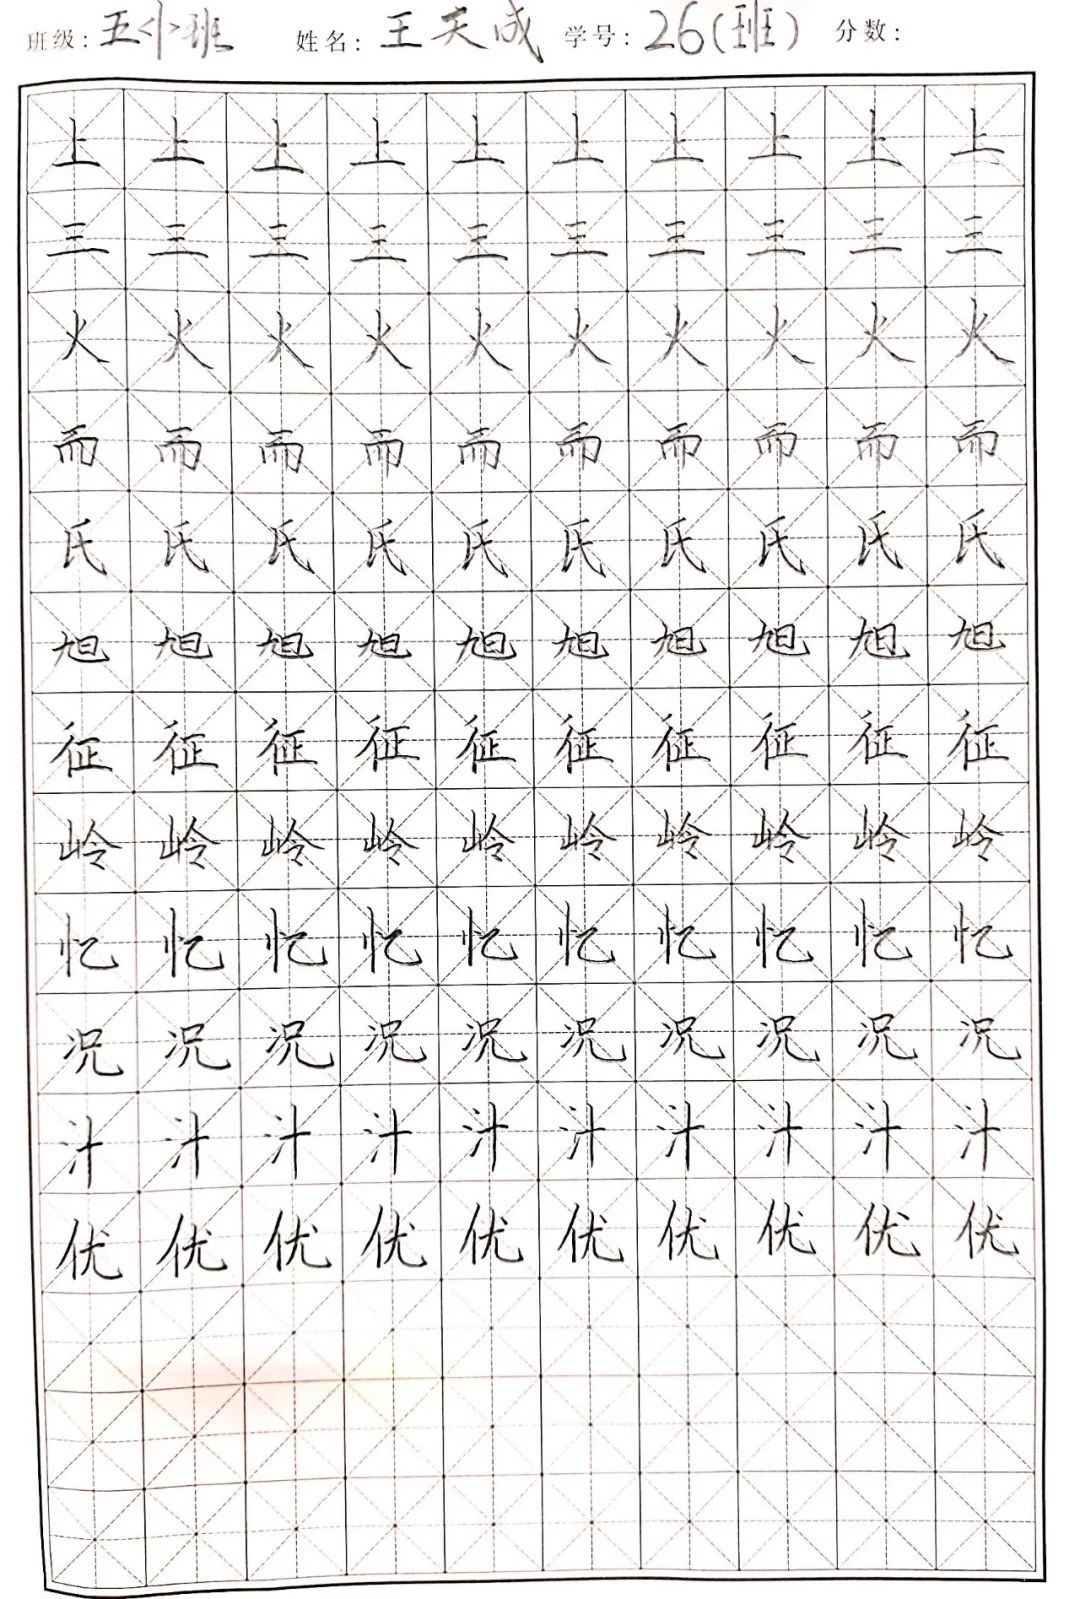 班级：五小班 姓名：王天成 学号：26（班） 分数：
上上上上上上上上上上
三三三三三三三三三三
火火火火火火火火火火
而而而而而而而而而而
氏氏氏氏氏氏氏氏氏氏
旭旭旭旭旭旭旭旭旭旭
征征征征征征征征征征
岭岭岭岭岭岭岭岭岭岭
忆忆忆忆忆忆忆忆忆忆
况况况况况况况况况况
汁汁汁汁汁汁汁汁汁汁
优优优优优优优优优优